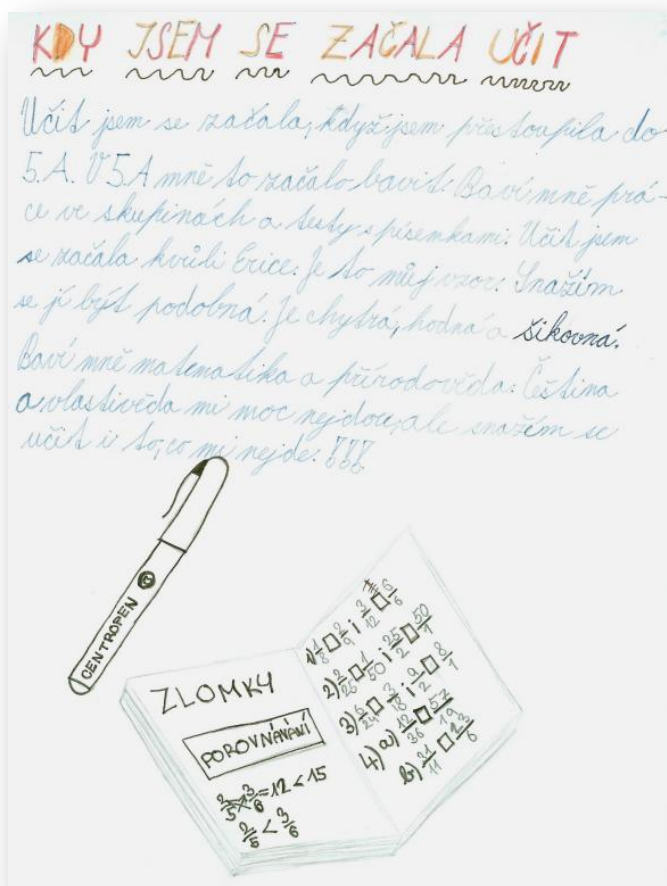 KDY JSEM SE ZAČALA UČIT
Učit jsem se začala, když jsem přestoupila do
5.A. V 5.A mně to začalo bavit. Baví mně prá-
ce ve skupinách a testy s písemkami. Učit jsem
se začala kvůli Erice. Je to můj vzor. Snažím
se jí být podobná. Je chytrá, hodná a šikovná.
Baví mně matematika a přírodověda. Čeština
a vlastivěda mi moc nejdou, ale snažím se
učit i to, co mi nejde. !!!
CENTROPEN C
ZLOMKY
POROVNÁVÁNÍ
2/5 3/6 = 12 < 15
2/5 < 3/6
1) 1/8 □ 2/9 ; 3/12 □ 6/6
2) 2/25 □ 1/50 ; 25/2 □ 50/1
3) 6/24 □ 3/18 ; 9/2 □ 8/1
4) a) 12/36 □ 57/19
b) 31/11 □ 2 3/6